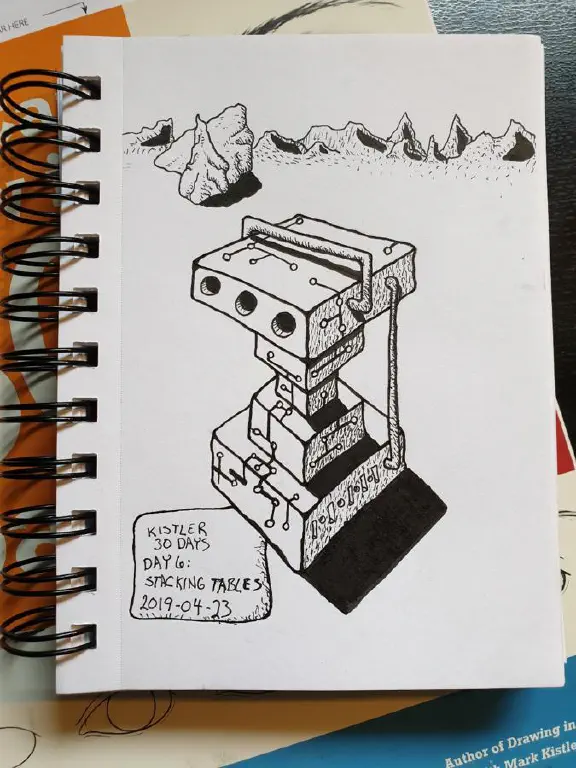 R HERE
KISTLER
30 DAYS
DAY 6:
STACKING TABLES
2019-04-23
Author of Drawing in
Mark Kistle